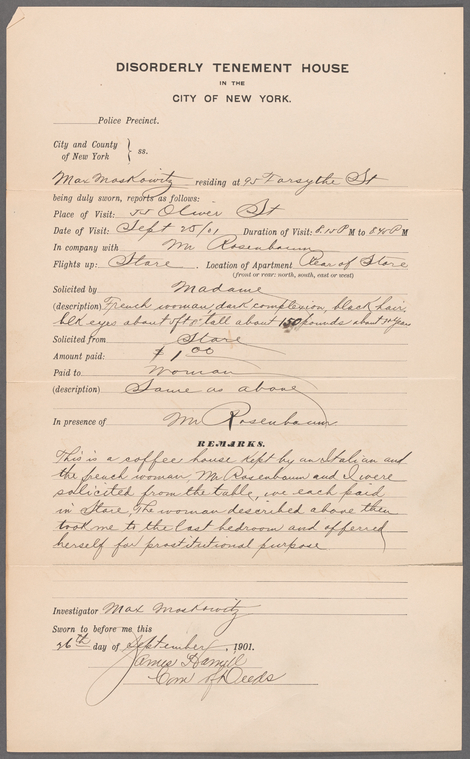 DISORDERLY TENEMENT HOUSE
IN THE
CITY OF NEW YORK.
Police Precinct.
City and County
of New York } ss.
Max Moskowitz residing at 95 Forsythe St
being duly sworn, reports as follows:
Place of Visit: Oliver St
Date of Visit: Sept 25/01 Duration of Visit: 8.15 P M to 8.45 P M
In company with Mr Rosenbaum
Flights up: Store. Location of Apartment Rear of Store
(front or rear: north, south, east or west)
Solicited by Madame
(description) French woman, dark complexion, black hair,
blk eyes about 5ft tall about 150 pounds about years
Solicited from Store
Amount paid: $1.00
Paid to Woman
(description) Same as above
In presence of Mr Rosenbaum
REMARKS.
This is a coffee house kept by an Italian and
the french woman, Mr Rosenbaum and I were
solicited from the table, we each paid
in Store, The woman described above then
took me to the last bedroom and offerred
herself for prostitutional purpose
Investigator Max Moskowitz
Sworn to before me this
26th day of September, 1901.
James
Com of Deeds